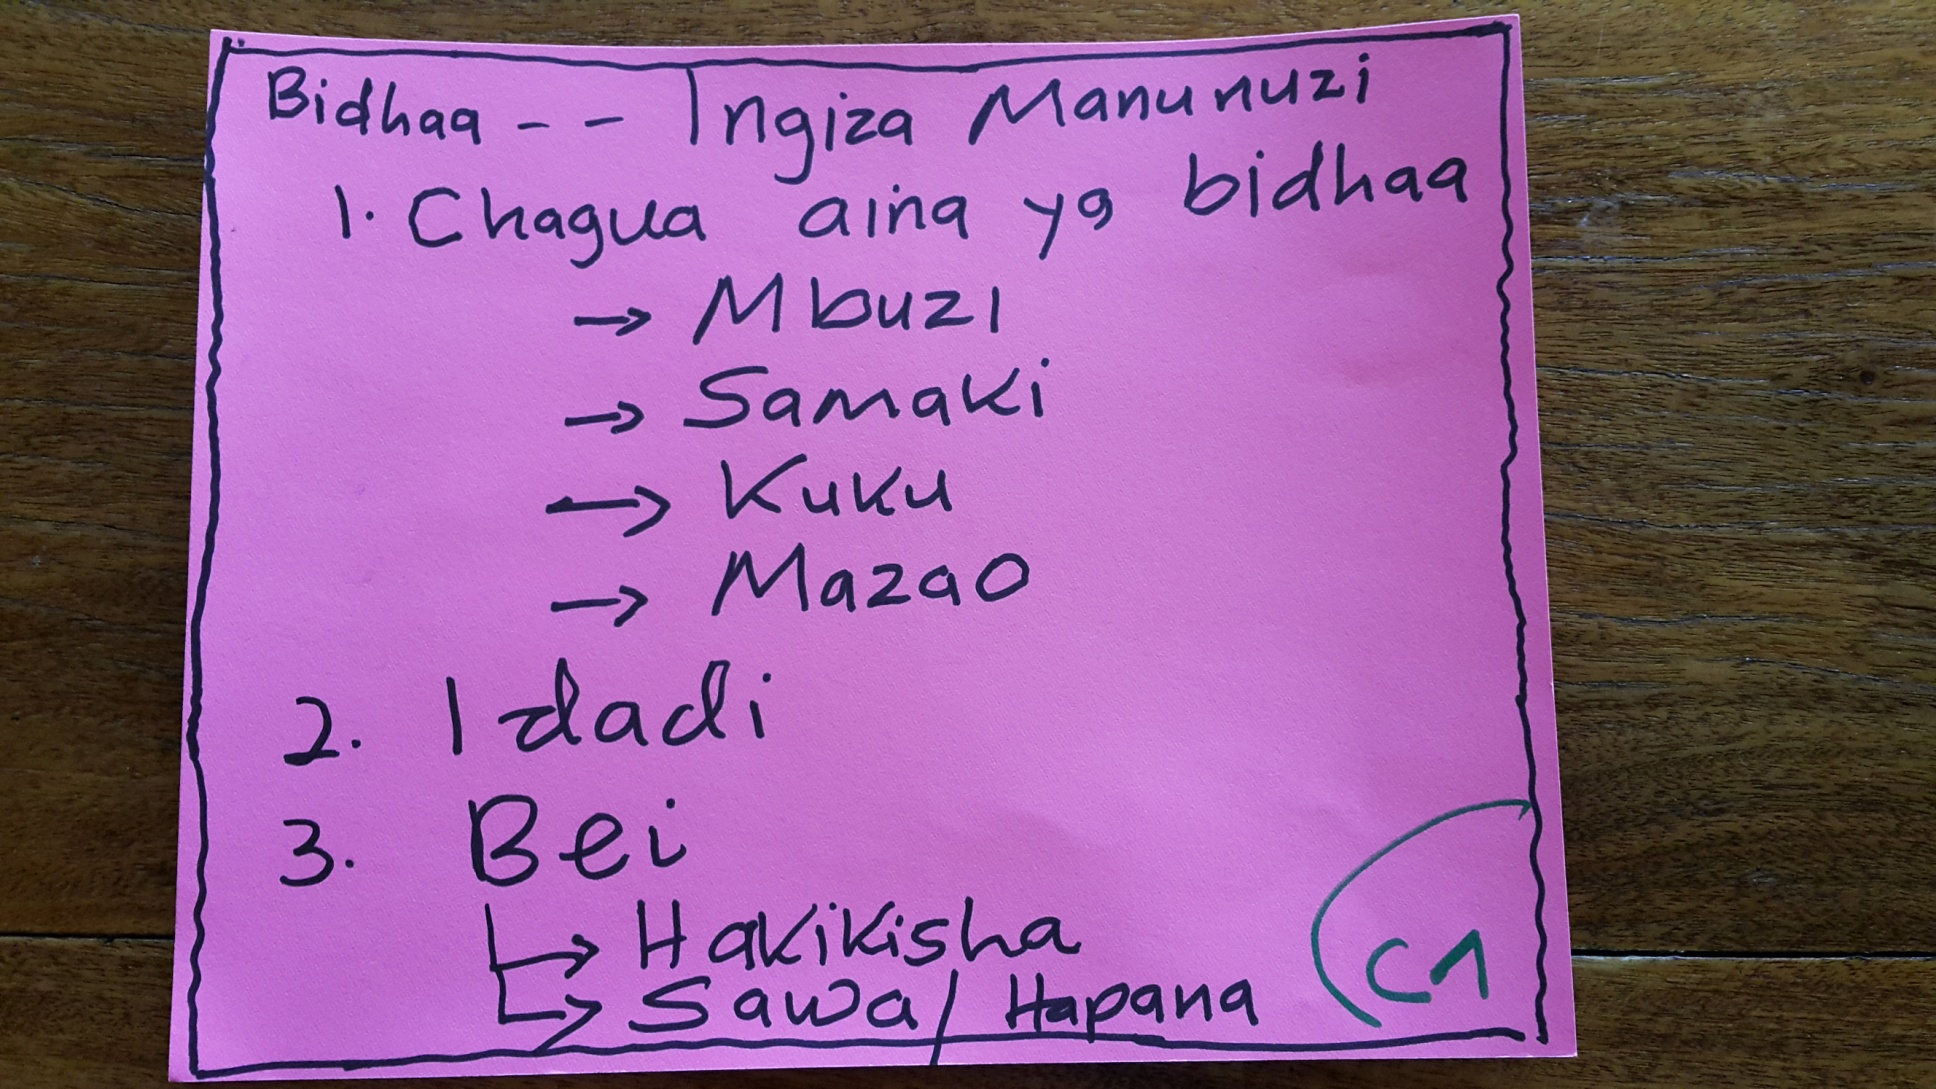 Bidhaa -- Ingiza Manunuzi
1. Chagua aina ya bidhaa
→ Mbuzi
→ Samaki
→ Kuku
→ Mazao
2. Idadi
3. Bei
→ Hakikisha
→ Sawa / Hapana
C1